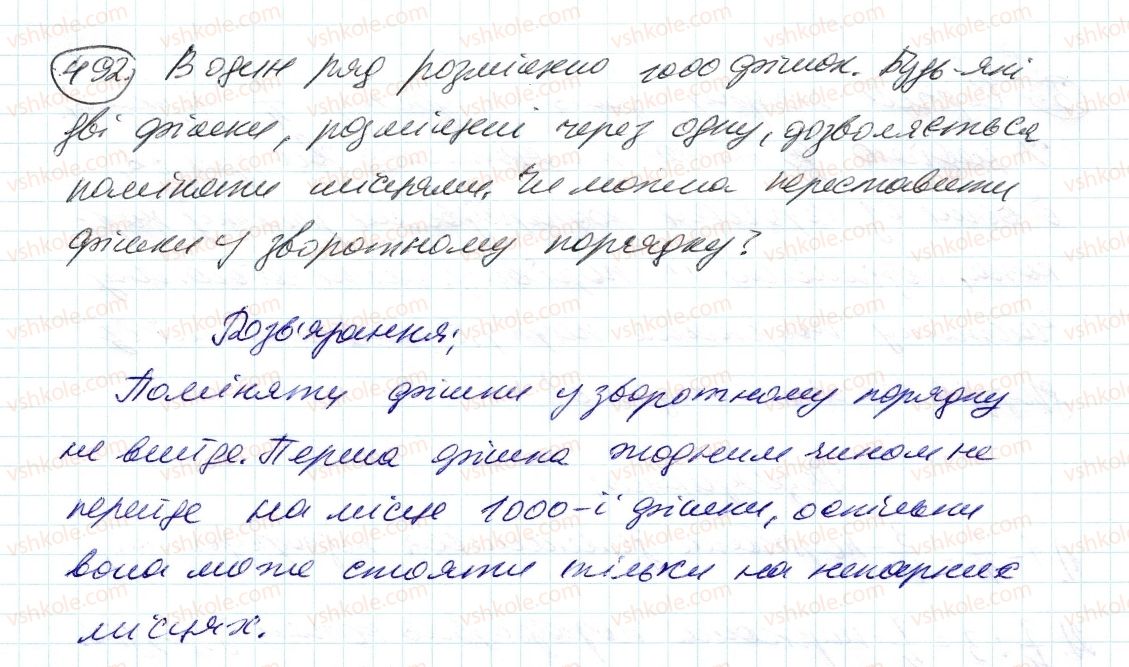 492. В один ряд розміщено 1000 фішок. Будь-які
дві фішки, розміщені через одну, дозволяється
поміняти місцями. Чи можна переставити
фішки у зворотному порядку?
Розв'язання:
Поміняти фішки у зворотному порядку
не вийде. Перша фішка жодним чином не
перейде на місце 1000-ї фішки, оскільки
вона може стояти тільки на непарних
місцях.